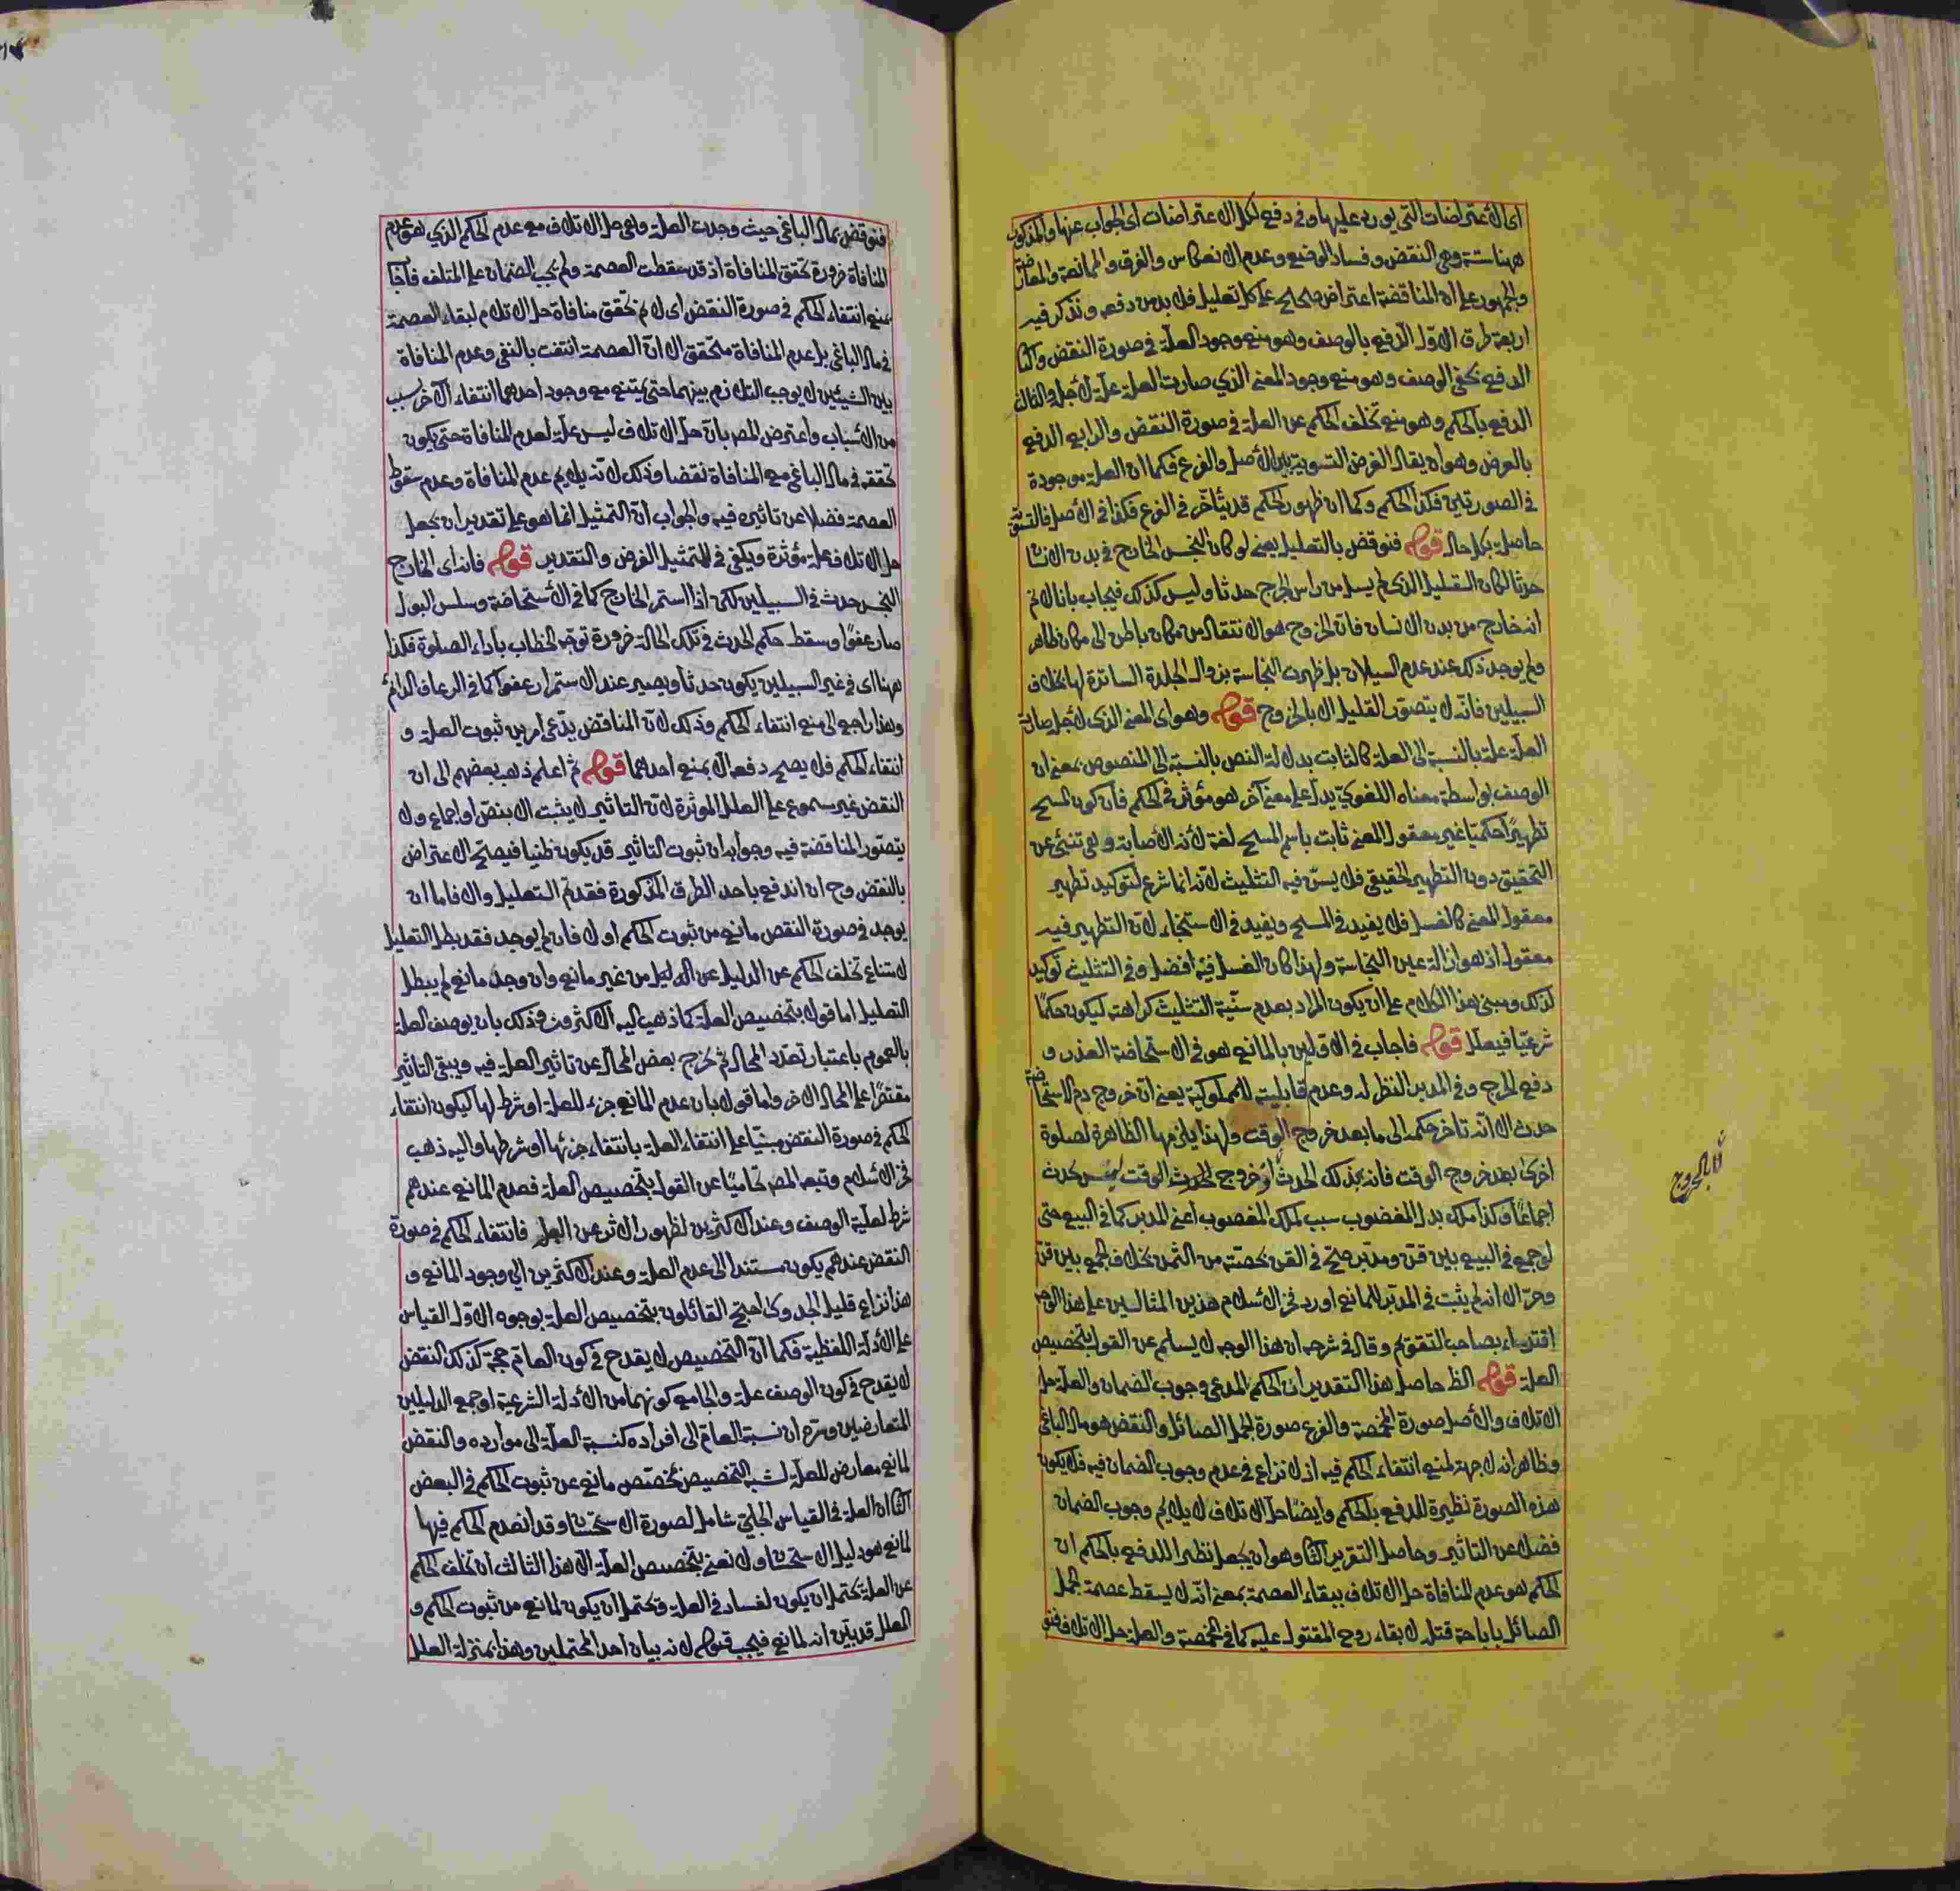 اى الاعتراضات التى يورد عليها وفى دفع تلك الاعتراضات اى الجواب عنها والمذكور
ههنا ستة وهى النقض وفساد الوضع وعدم الانعكاس والفرق والممانعة والمعارضة
والجمهور على ان المناقضة اعتراض صحيح على كل تعليل فلا بد من دفعه ونذكر فيه
اربعة طرق الاول الدفع بالوصف وهو منع وجود العلة فى صورة النقض والثا
الدفع بمعنى الوصف وهو منع وجود المعنى الذى صارت العلة علة لاجله والثالث
الدفع بالحكم وهو منع تخلف الحكم عن العلة فى صورة النقض والرابع الدفع
بالغرض وهو ان يقال الغرض التسوية بين الاصل والفرع فكما ان العلة موجودة
فى الصورتين فكذا الحكم وكما ان ظهور الحكم قد يتأخر فى الفرع فكذا فى الاصل فالتسوية
حاصلة بكل حال قوله فنوقض بالتعليل يعنى لو كان النجس الخارج فى بدن الانسا
حدثا لكان القليل الذى لم يسل من راس الجرح حدثا وليس كذلك فيجاب بانا لا نم
انه خارج من بدن الانسان فان الخروج هو الانتقال من مكان باطن الى مكان ظاهر
ولم يوجد ذلك عند عدم السيلان بل ظهرت النجاسة بزوال الجلدة الساترة لها بخلاف
السبيلين فانه لا يتصور القليل الا بالخروج قوله وهو اى المعنى الذى لاجله صارت
العلة علة بالنسبة الى العلة كالثابت بدلالة النص بالنسبة الى المنصوص بمعنى ان
الوصف بواسطة معناه اللغوى يدل على معنى آخر هو مؤثر فى الحكم فان كون المسح
تطهيرا حكميا غير معقول المعنى ثابت باسم المسح لغة لانه الاصابة وهى تنبئ عن
التحقيق دون التطهير الحقيقى فلا يسن فيه التثليث لانه انما شرع لتوكيد تطهير
معقول المعنى كالغسل فلا يفيد فى المسح ويفيد فى الاستنجاء لان التطهير فيه
معقول اذ هو ازالة عين النجاسة ولهذا كان الغسل فيه افضل وفى التثليث توكيد
لذلك ومبنى هذا الكلام على ان يكون المراد بعدم سنية التثليث كراهته ليكون حكما
شرعيا فيعلل قوله فاجاب فى الاولين بالمانع هو فى الاستحاضة العذر و
دفع الحرج وفى المدبر النظر له وعدم قابليته للمملوكية يعنى ان خروج دم الاستحاضة
حدث الا انه تاخر حكمه الى ما بعد خروج الوقت ولهذا يلزمها الطاهرة لصلوة
اخرى بعد خروج الوقت فانه بذلك الحدث اذ خروج الوقت ليس بحدث
اجماعا وكذا ملك بدل المغصوب سبب لملك المغصوب اعنى المدبر كما فى البيع حتى
لو جمع فى البيع بين قن ومدبر صح فى القن بحصته من الثمن بخلاف الجمع بين قن
وحر الا انه لم يثبت فى المدبر للمانع اورد فخر الاسلام هذين المثالين على هذا الوجه
اقتداء بصاحب التقويم وقال فى شرحه ان هذا الوجه لا يسلم عن القول بتخصيص
العلة قوله الظ حاصل هذا التقدير ان الحكم المدعى وجوب الضمان والعلة حل
الاتلاف والاصل صورة المخمصة والفرع صورة الجمل الصائل والنقض هو مال الباغى
وظاهر انه لا جهة لمنع انتفاء الحكم فيه اذ لا نزاع فى عدم وجوب الضمان فيه فلا يكون
هذه الصورة نظيرة للدفع بالحكم وايضا حل الاتلاف لا يلايم وجوب الضمان
فضلا عن التاثير وحاصل التقرير الثا وهو ان يجعل نظير اللدفع بالحكم ان
الحكم هو عدم المنافاة حل الاتلاف ببقاء العصمة بمعنى انه لا يسقط عصمة الجمل
الصائل باباحة قتله لابقاء روح المقتول عليه كما فى المخمصة والعلة حل الاتلاف فنو
لا بالخروج
فنوقض بمال الباغى حيث وجدت العلة وهى حل الاتلاف مع عدم الحكم الذى هو عدم
المنافاة ضرورة تحقق المنافاة اذ قد سقطت العصمة ولم يجب الضمان على المتلف فاجا
بمنع انتفاء الحكم فى صورة النقض اى لا نم تحقق منافاة حل الاتلام لبقاء العصمة
فى مال الباغى بل عدم المنافاة متحقق الا ان العصمة انتفت بالبغى وعدم المنافاة
بين الشيئين لا يوجب التلازم بينهما حتى يمتنع مع وجود احدهما انتفاء الآخر بسبب
من الاسباب واعترض المص بان حل الاتلاف ليس علة لعدم المنافاة حتى يكون
تحققه فى مال الباغى مع المنافاة نقضا وذلك لانه لا يلايم عدم المنافاة وعدم سقوط
العصمة فضلا عن تاثيره فيه والجواب ان التمثيل انما هو على تقدير ان يجعل
حل الاتلاف علة مؤثرة ويكفى فى التمثيل الفرض والتقدير قوله فانه اى الخارج
النجس حدث فى السبيلين لكن اذا استمر الخارج كما فى الاستحاضة وسلس البول
صار عفوا وسقط حكم الحدث فى تلك الحالة ضرورة توجه الخطاب باداء الصلوة فكذا
ههنا اى فى غير السبيلين يكون حدثا ويصير عند الاستمرار عفوا كما فى الرعاف الدائم
وهذا راجع الى منع انتفاء الحكم وذلك لان المناقض يدعى امرين ثبوت العلة و
انتفاء الحكم فلا يصح دفعه الا بمنع احدهما قوله ثم اعلم ذهب بعضهم الى ان
النقض غير مسموع على العلل الموثرة لان التاثير لا يثبت الا بنص او اجماع ولا
يتصور المناقضة فيه وجوابه ان ثبوت التاثير قد يكون ظنيا فيصح الاعتراض
بالنقض وح ان اندفع باحد الطرق المذكورة فقد تم التعليل والا فاما ان
يوجد فى صورة النقض مانع من ثبوت الحكم او لا فان لم يوجد فقد بطل التعليل
لامتناع تخلف الحكم عن الدليل من غير مانع وان وجد مانع لم يبطل
التعليل اما قولا بتخصيص العلة كما ذهب اليه الاكثرون وذلك بان يوصف العلة
بالعموم باعتبار تعدد المحال ثم يخرج بعض المحال عن تاثير العلة فيه ويبقى التاثير
مقتصرا على المحال الاخر واما قولا بان عدم المانع جزء للعلة او شرط لها ليكون انتفاء
الحكم فى صورة النقض مبنيا على انتفاء العلة بانتفاء جزئها او شرطها واليه ذهب
فخر الاسلام وتبعه المص تحاميا عن القول بتخصيص العلة فعدم المانع عندهم
شرط لعلية الوصف وعند الاكثرين لظهور الاثر عن العلة فانتفاء الحكم فى صورة
النقض عندهم يكون مستندا الى عدم العلة وعند الاكثرين الى وجود المانع و
هذا نزاع قليل الجدوى احتج القائلون بتخصيص العلة بوجوه الاول القياس
على الادلة اللفظية فكما ان التخصيص لا يقدح فى كون العام حجة كذلك النقض
لا يقدح فى كون الوصف علة والجامع كونهما من الادلة الشرعية او جمع الدليلين
المتعارضين وسره ان نسبة العام الى افراده كنسبة العلة الى موارده والنقض
لمانع معارض للعلة لشبه التخصيص بمخصص مانع عن ثبوت الحكم فى البعض
الثا ان العلة فى القياس الجلى شامل لصورة الاستحسان وقد انعدم الحكم فيها
لمانع هو دليل الاستحسان ولا نعنى بتخصيص العلة الا هذا الثالث ان تخلف الحكم
عن العلة يحتمل ان يكون لفساد فى العلة ويحتمل ان يكون لمانع من ثبوت الحكم و
المعلل قد بين انه لمانع فيجب قبوله لانه بيان احد المحتملين وهذا بمنزلة العلل